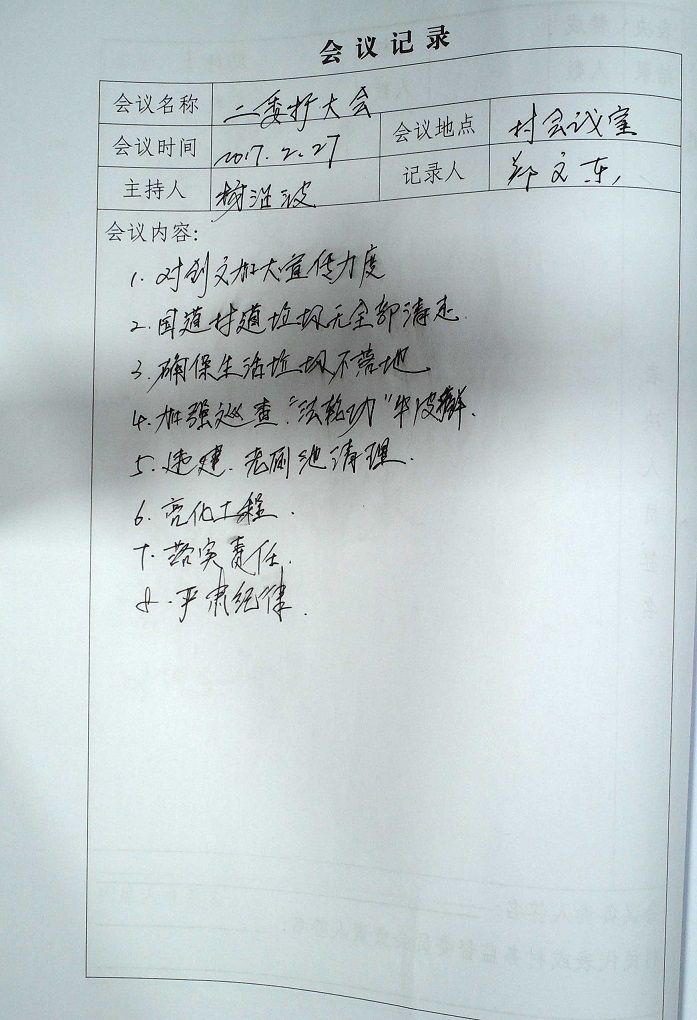 会议记录
会议名称 二委扩大会
会议时间 2017.2.27 会议地点 村会议室
主持人 沿波 记录人 郑文东
会议内容:
1. 对创文加大宣传力度
2. 国道村道垃圾无全部清走.
3. 确保生活垃圾不落地
4. 加强巡查“法轮功”牛皮癣.
5. 违建.老厕池清理.
6. 亮化工程.
7. 落实责任.
8. 严肃纪律.